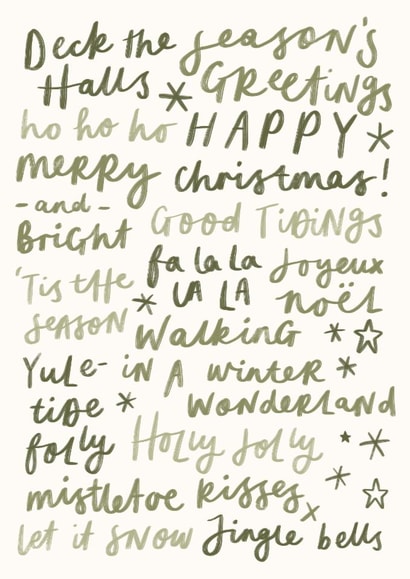 Deck the Season's
Halls Greetings
ho ho ho HAPPY
merry christmas!
-and-
BriGHt Good TiDiNGs
fa la la Joyeux
'Tis the LA LA noël
SeASON WalkinG
YuLe- iN A winter
tiDe WonDerLand
folly Holly Jolly
mistletoe kisses x
let it snow Jingle bells